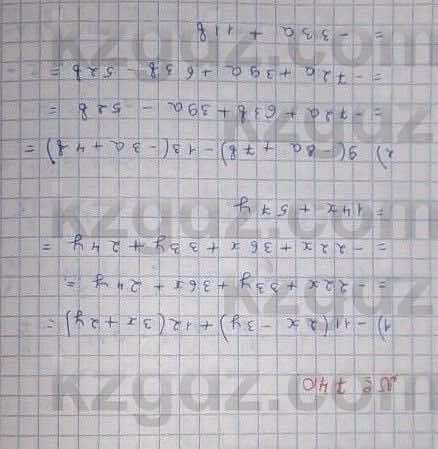 № 740
1) -11(2x - 3y) + 12(3x + 2y) =
= -22x + 33y + 36x + 24y =
= -22x + 36x + 33y + 24y =
= 14x + 57y
2) 9(-8a + 7b) - 13(-3a + 4b) =
= -72a + 63b + 39a - 52b =
= -72a + 39a + 63b - 52b =
= -33a + 11b
kzgdz.com
kzgdz.com
kzgdz.com
kzgdz.com